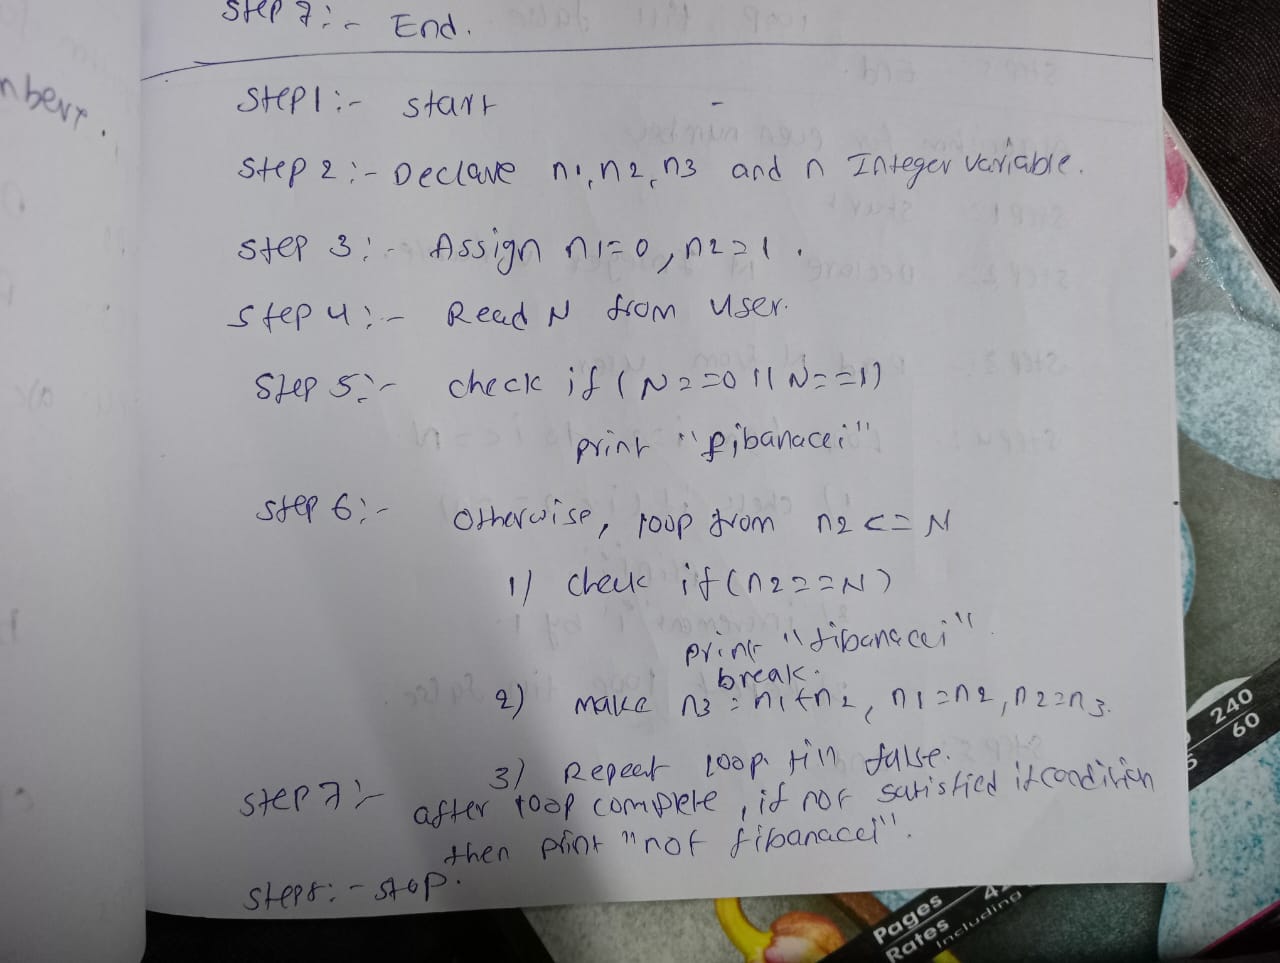 Step 7:- End.
nberr.
Step1:- start
Step 2:- Declare n1, n2, n3 and n Integer variable.
Step 3:- Assign n1=0, n2=1.
Step 4:- Read N from user.
Step 5:- check if (N==0 || N==1)
print "fibanacci"
Step 6:- Otherwise, loop from n2 <= N
1) check if (n2==N)
print "fibanacci"
break.
2) make n3=n1+n2, n1=n2, n2=n3.
3) Repeat loop till false.
Step 7:- after loop complete, if not satisfied if condition
then print "not fibanacci".
Step8:- stop.
240
60
5
Pages
Rates
Including